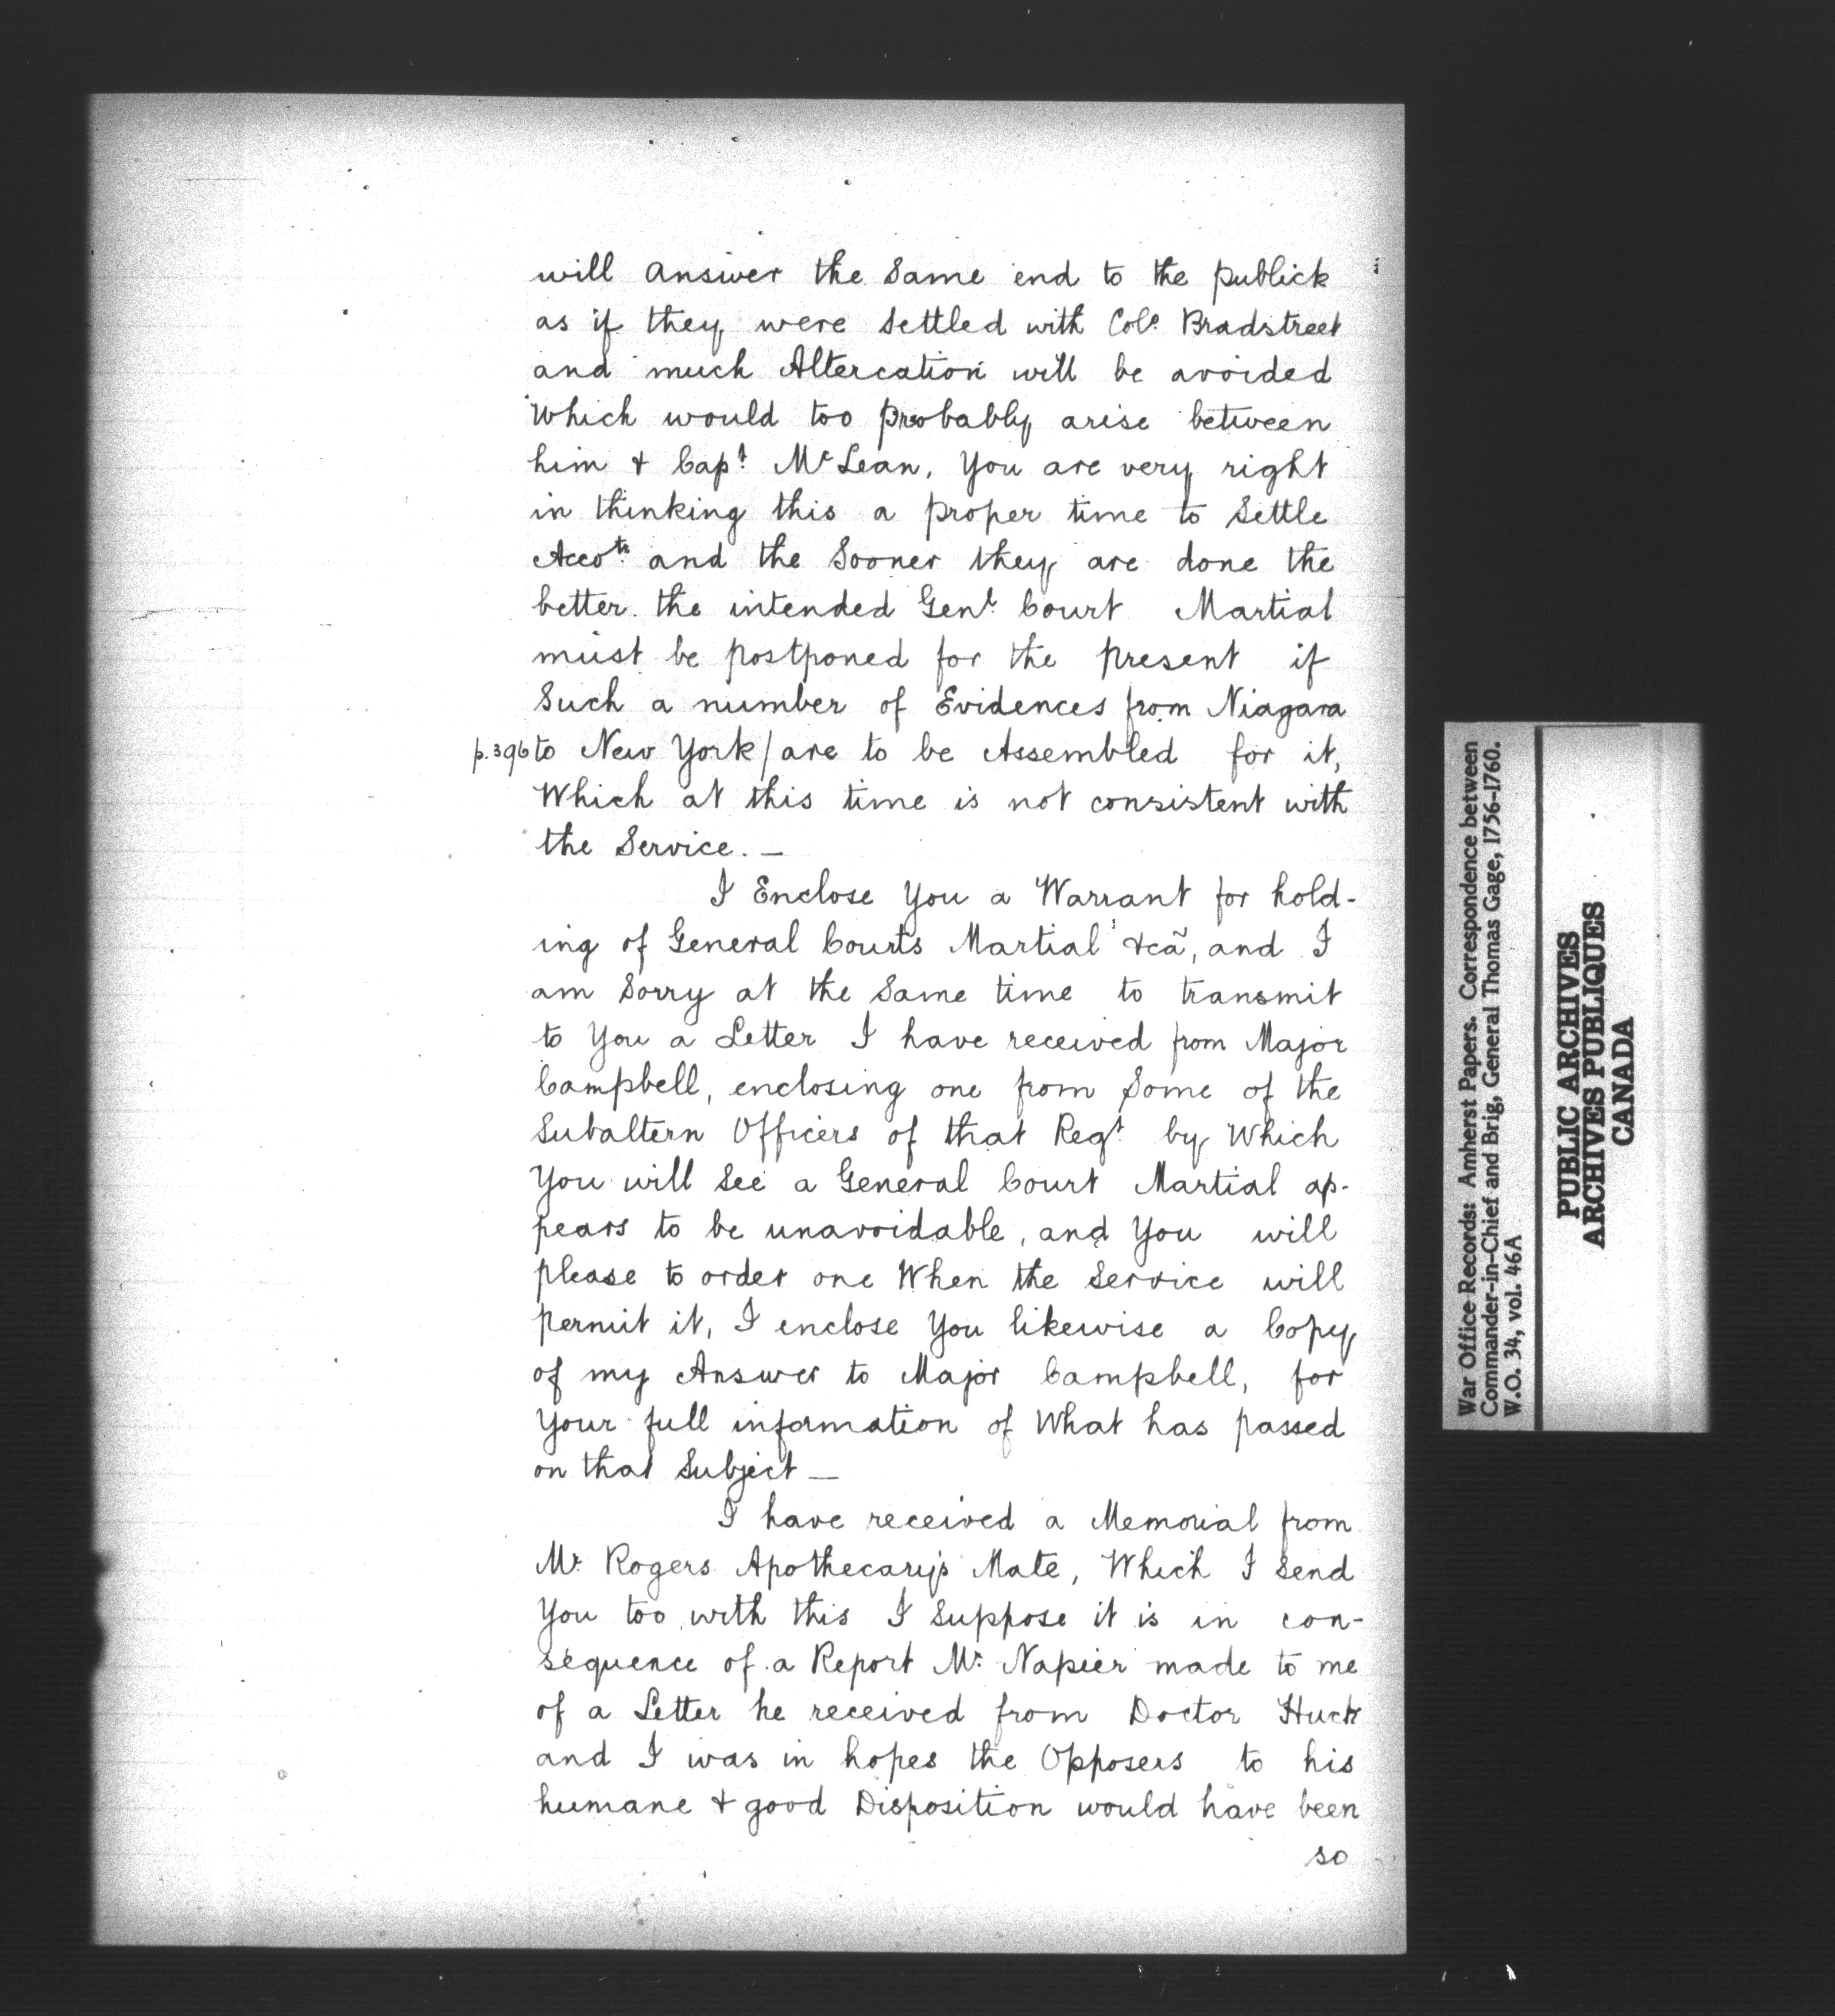 will answer the Same end to the publick
as if they were Settled with Colo. Bradstreet
and much Altercation will be avoided
Which would too probably arise between
him & Capt. Mc Lean, You are very right
in thinking this a proper time to Settle
Accots. and the Sooner they are done the
better. the intended Genl. Court Martial
must be postponed for the present if
Such a number of Evidences from Niagara
p.396 to New York / are to be Assembled for it,
Which at this time is not consistent with
the Service. —
I Enclose You a Warrant for hold-
ing of General Courts Martial &ca, and I
am Sorry at the Same time to transmit
to You a Letter I have received from Major
Campbell, enclosing one from Some of the
Subaltern Officers of that Regt. by Which
You will See a General Court Martial ap-
pears to be unavoidable, and You will
please to order one When the Service will
permit it, I enclose You likewise a Copy
of my Answer to Major Campbell, for
Your full information of What has passed
on that Subject —
I have received a Memorial from
Mr. Rogers Apothecary's Mate, Which I Send
You too with this I Suppose it is in con-
sequence of a Report Mr. Napier made to me
of a Letter he received from Doctor Huck
and I was in hopes the Opposers to his
humane & good Disposition would have been
so
War Office Records: Amherst Papers. Correspondence between
Commander-in-Chief and Brig, General Thomas Gage, 1756-1760.
W.O. 34, vol. 46A
PUBLIC ARCHIVES
ARCHIVES PUBLIQUES
CANADA